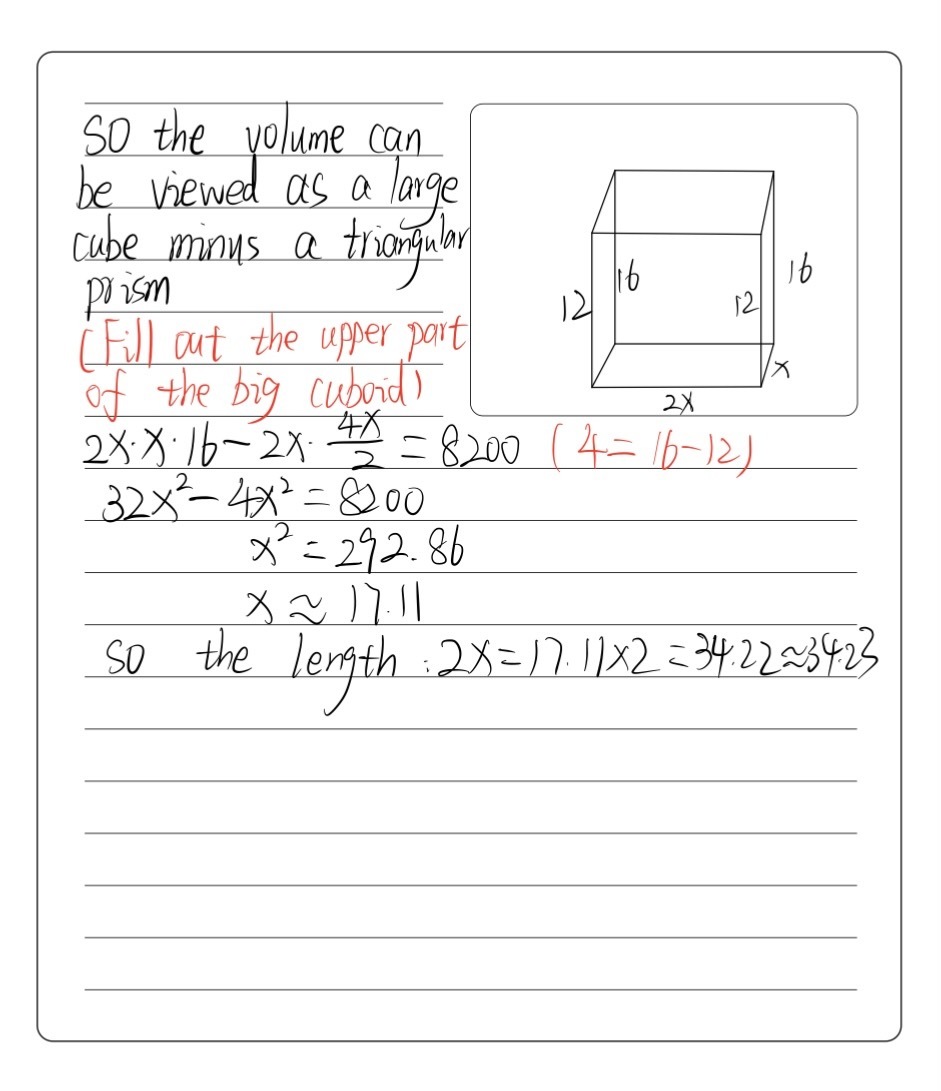 SO the volume can
be viewed as a large
cube minus a triangular
prism
(Fill out the upper part
of the big cuboid)
12 16 12 16
x
2x
2x·x·16-2x·4x/2=8200 (4=16-12)
32x²-4x²=8200
x²=292.86
x≈17.11
so the length:2x=17.11×2=34.22≈34.23